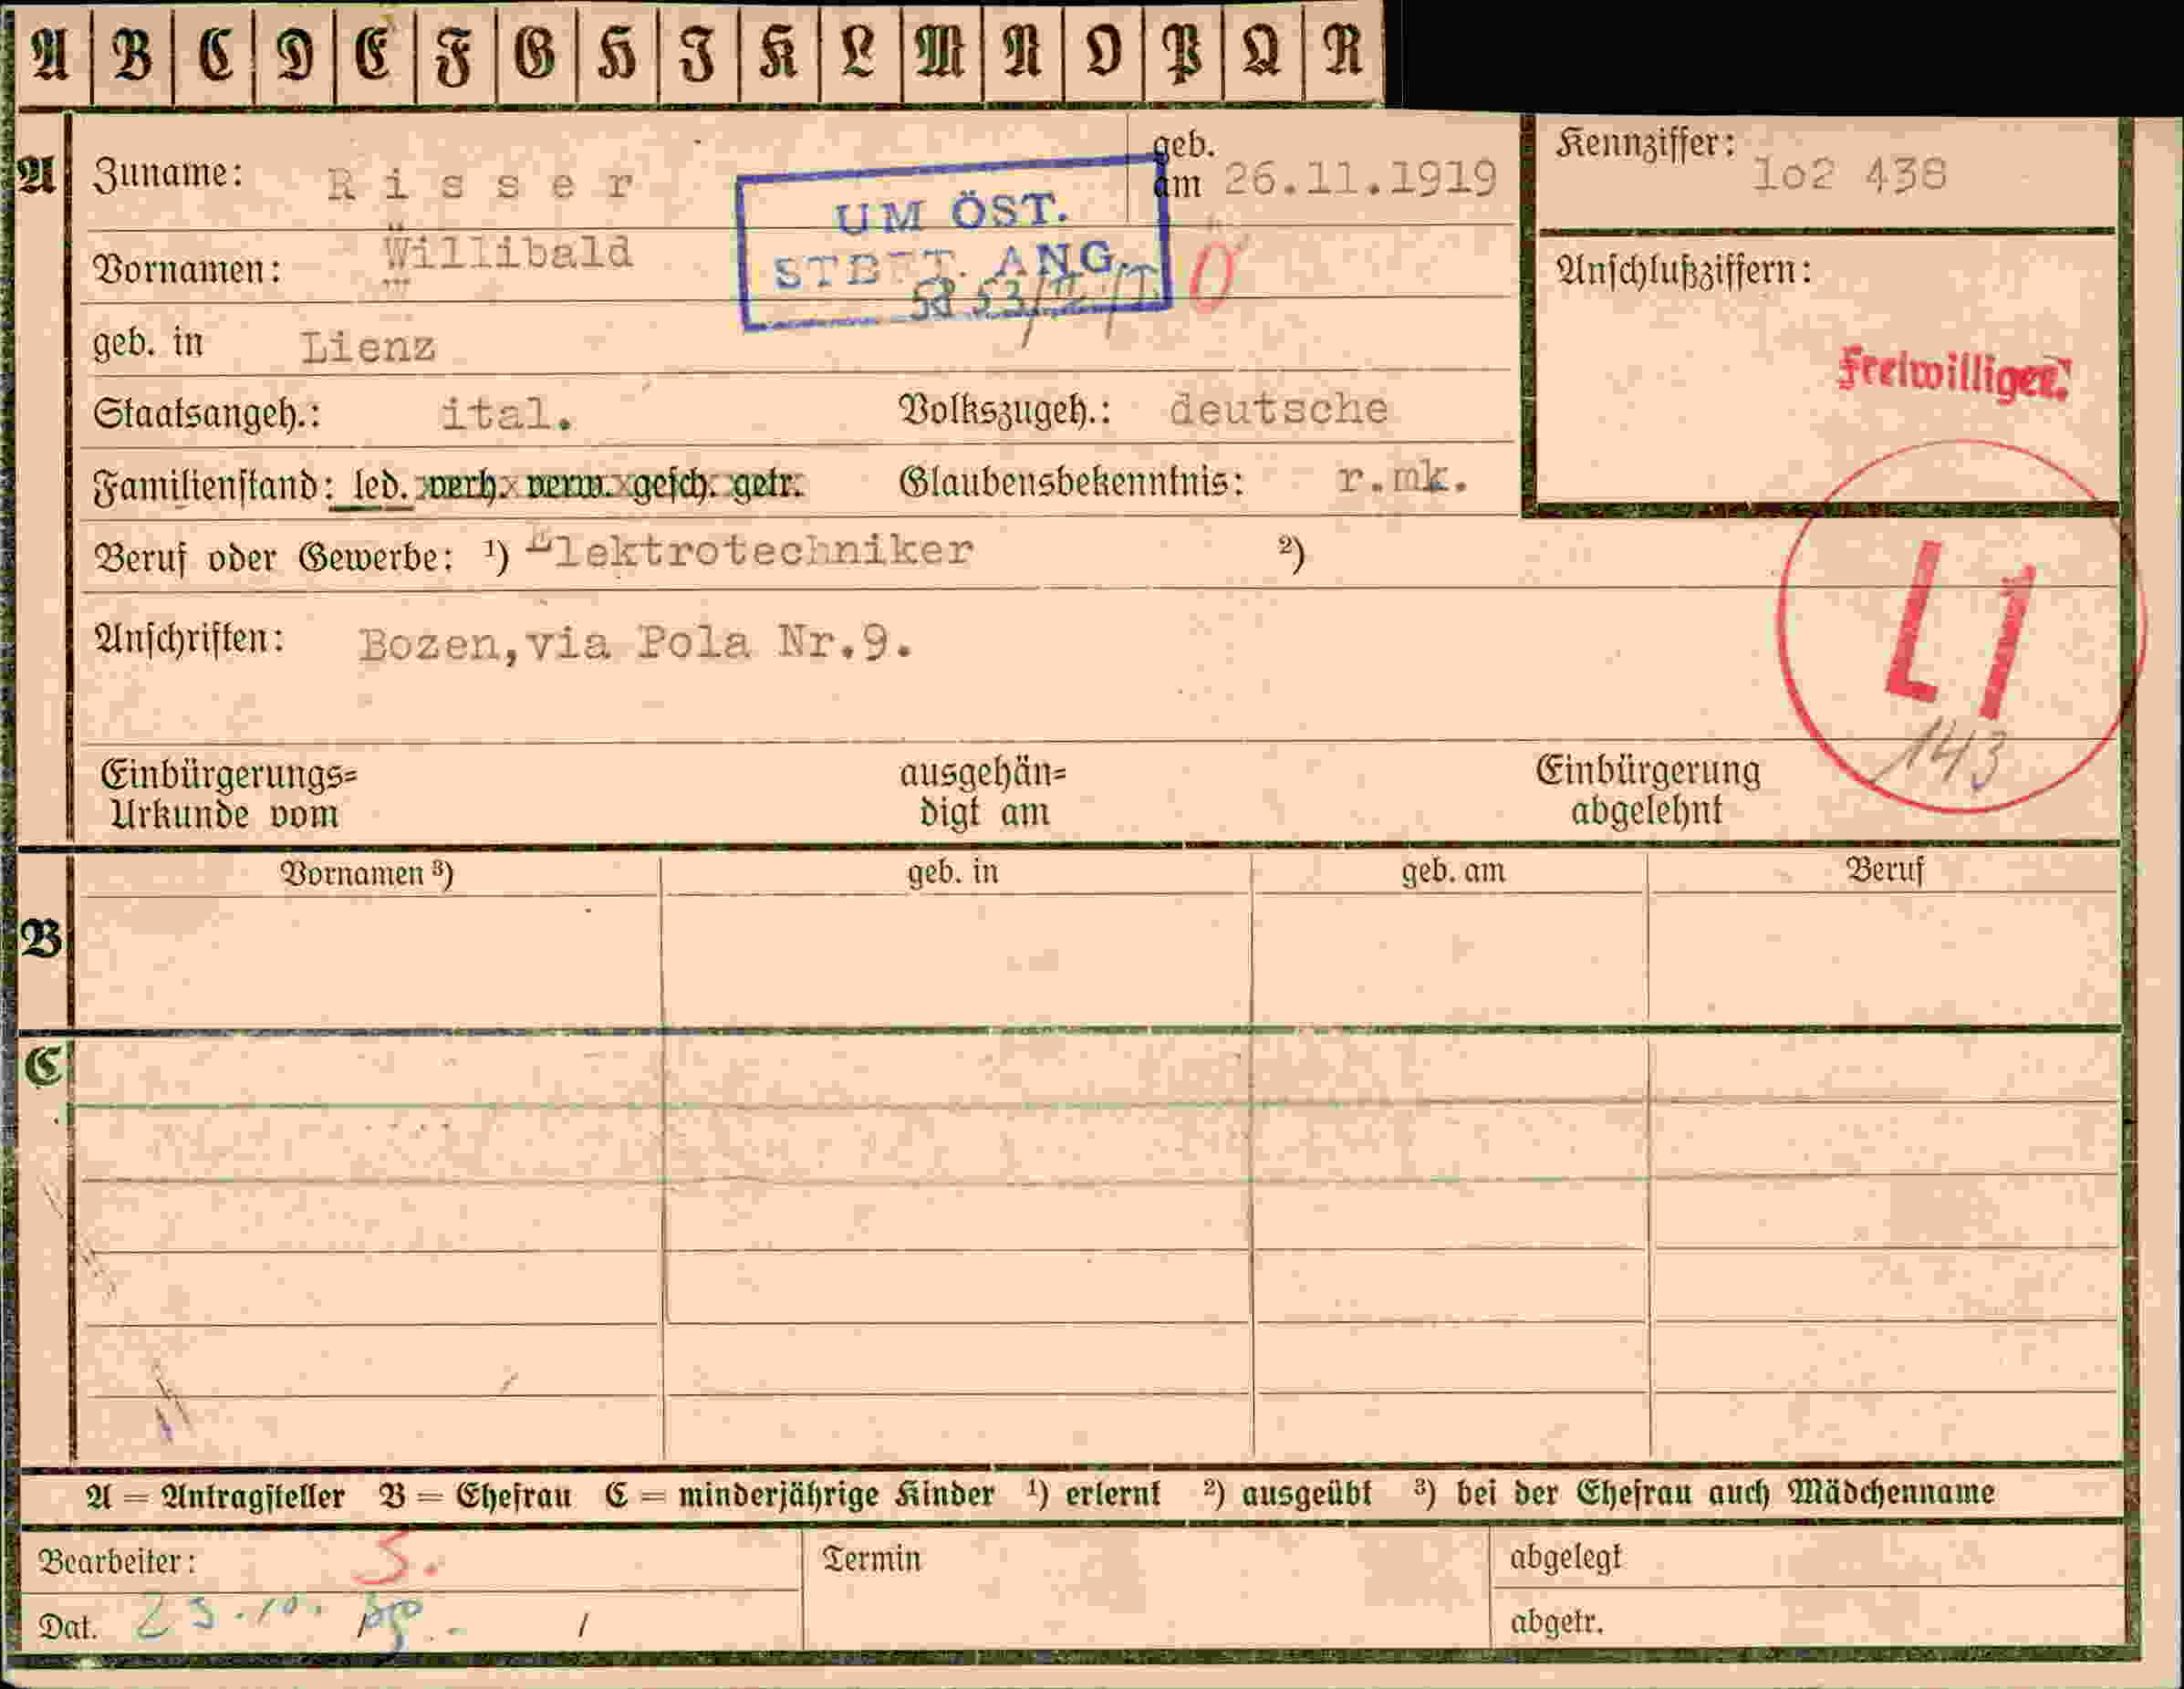 A B C D E F G H I K L M N O P Q R
A Zuname: Risser geb. am 26.11.1919 Kennziffer: 1o2 438
UM ÖST.
STBT. ANG.
Vornamen: Willibald 0 Anschlußziffern:
geb. in Lienz
Freiwilliger.
Staatsangeh.: ital. Volkszugeh.: deutsche
Familienstand: led. verh. verw. gesch. getr. Glaubensbekenntnis: r.mk.
Beruf oder Gewerbe: ¹) Elektrotechniker ²)
L1
143
Anschriften: Bozen, via Pola Nr.9.
Einbürgerungs= ausgehän= Einbürgerung
Urkunde vom digt am abgelehnt
Vornamen ³) geb. in geb. am Beruf
B
C
A = Antragsteller B = Ehefrau C = minderjährige Kinder ¹) erlernt ²) ausgeübt ³) bei der Ehefrau auch Mädchenname
Bearbeiter: Termin abgelegt
Dat. 23.10. abgetr.